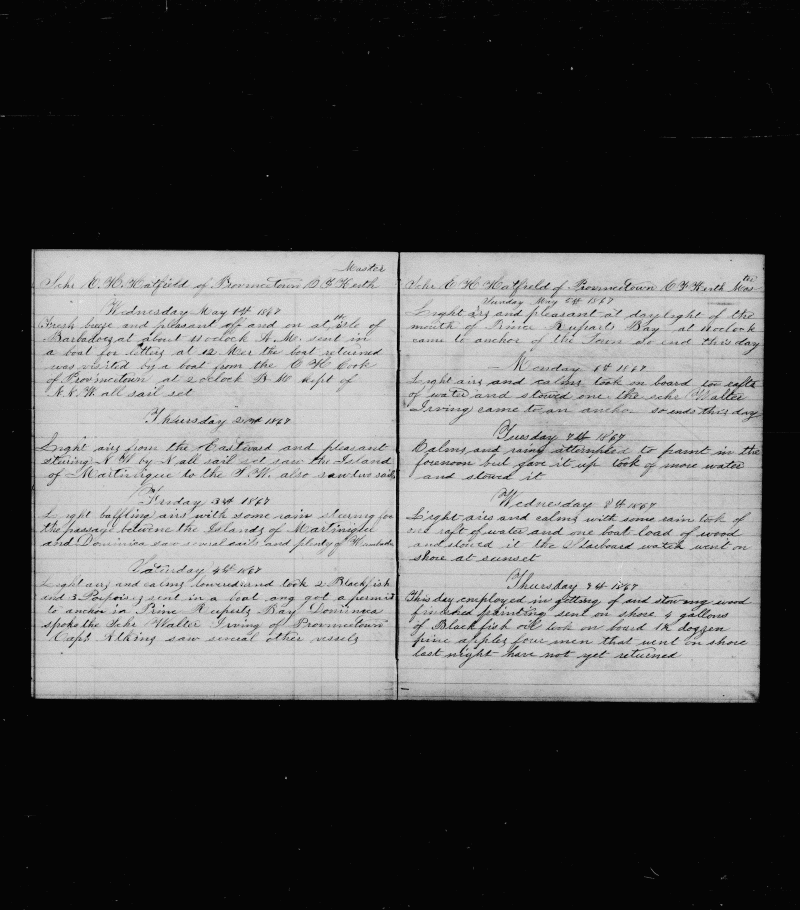 Master
Schr E. H. Hatfield of Provincetown C F Keith
Wednesday May 1st 1867
Fresh breeze and pleasant off and on at the isle of
Barbados at about 11 oclock A.M. sent in
a boat for letters at 12 Mer the boat returned
was visited by a boat from the C H Cook
of Provincetown at 2 oclock P. M. kept of
N.N.W. all sail set
Thursday 2nd 1867
Light airs from the Eastward and pleasant
sturing N W by N all sail set saw the Island
of Martinique to the saw sail
Friday 3d 1867
Light baffling airs with some rain sturing for
the passage betwene the Islands of Martinique
and Dominica saw several sails and plenty of Humbacks
Saturday 4th 1867
Light airs and calms lowered and took 2 Blackfish
and 3 Porpoises sent in a boat ang got a permit
to anchor in Prine Ruperts Bay Dominica
spoke the Schr Walter Irving of Provincetown
Capt Atkins saw several other vessels
ter
Schr E H Hatfield of Provincetown C F Keith Mas-
Sunday May 5th 1867
Light airs and pleasant at daylight of the
mouth of Prince Ruparts Bay at 11 oclock
came to anchor of the Town so end this day
Monday 6th 1867
Light airs and calms took on board two rafts
of water and stowed one the schr Walter
Irving came to an anchor so ends this day
Tuesday 7th 1867
Calms and rainy attempted to paint in the
forenoon but gave it up took of more water
and stowed it
Wednesday 8th 1867
Light airs and calms with some rain took of
one raft of water and one boat load of wood
and stowed it the Starboard watch went on
shore at sunset
Thursday 9th 1867
This day employed in getting of and stowing wood
finished painting sent on shore 4 gallons
of Blackfish oil took on board 1½ doggen
pine apples four men that went on shore
last night have not yet returned